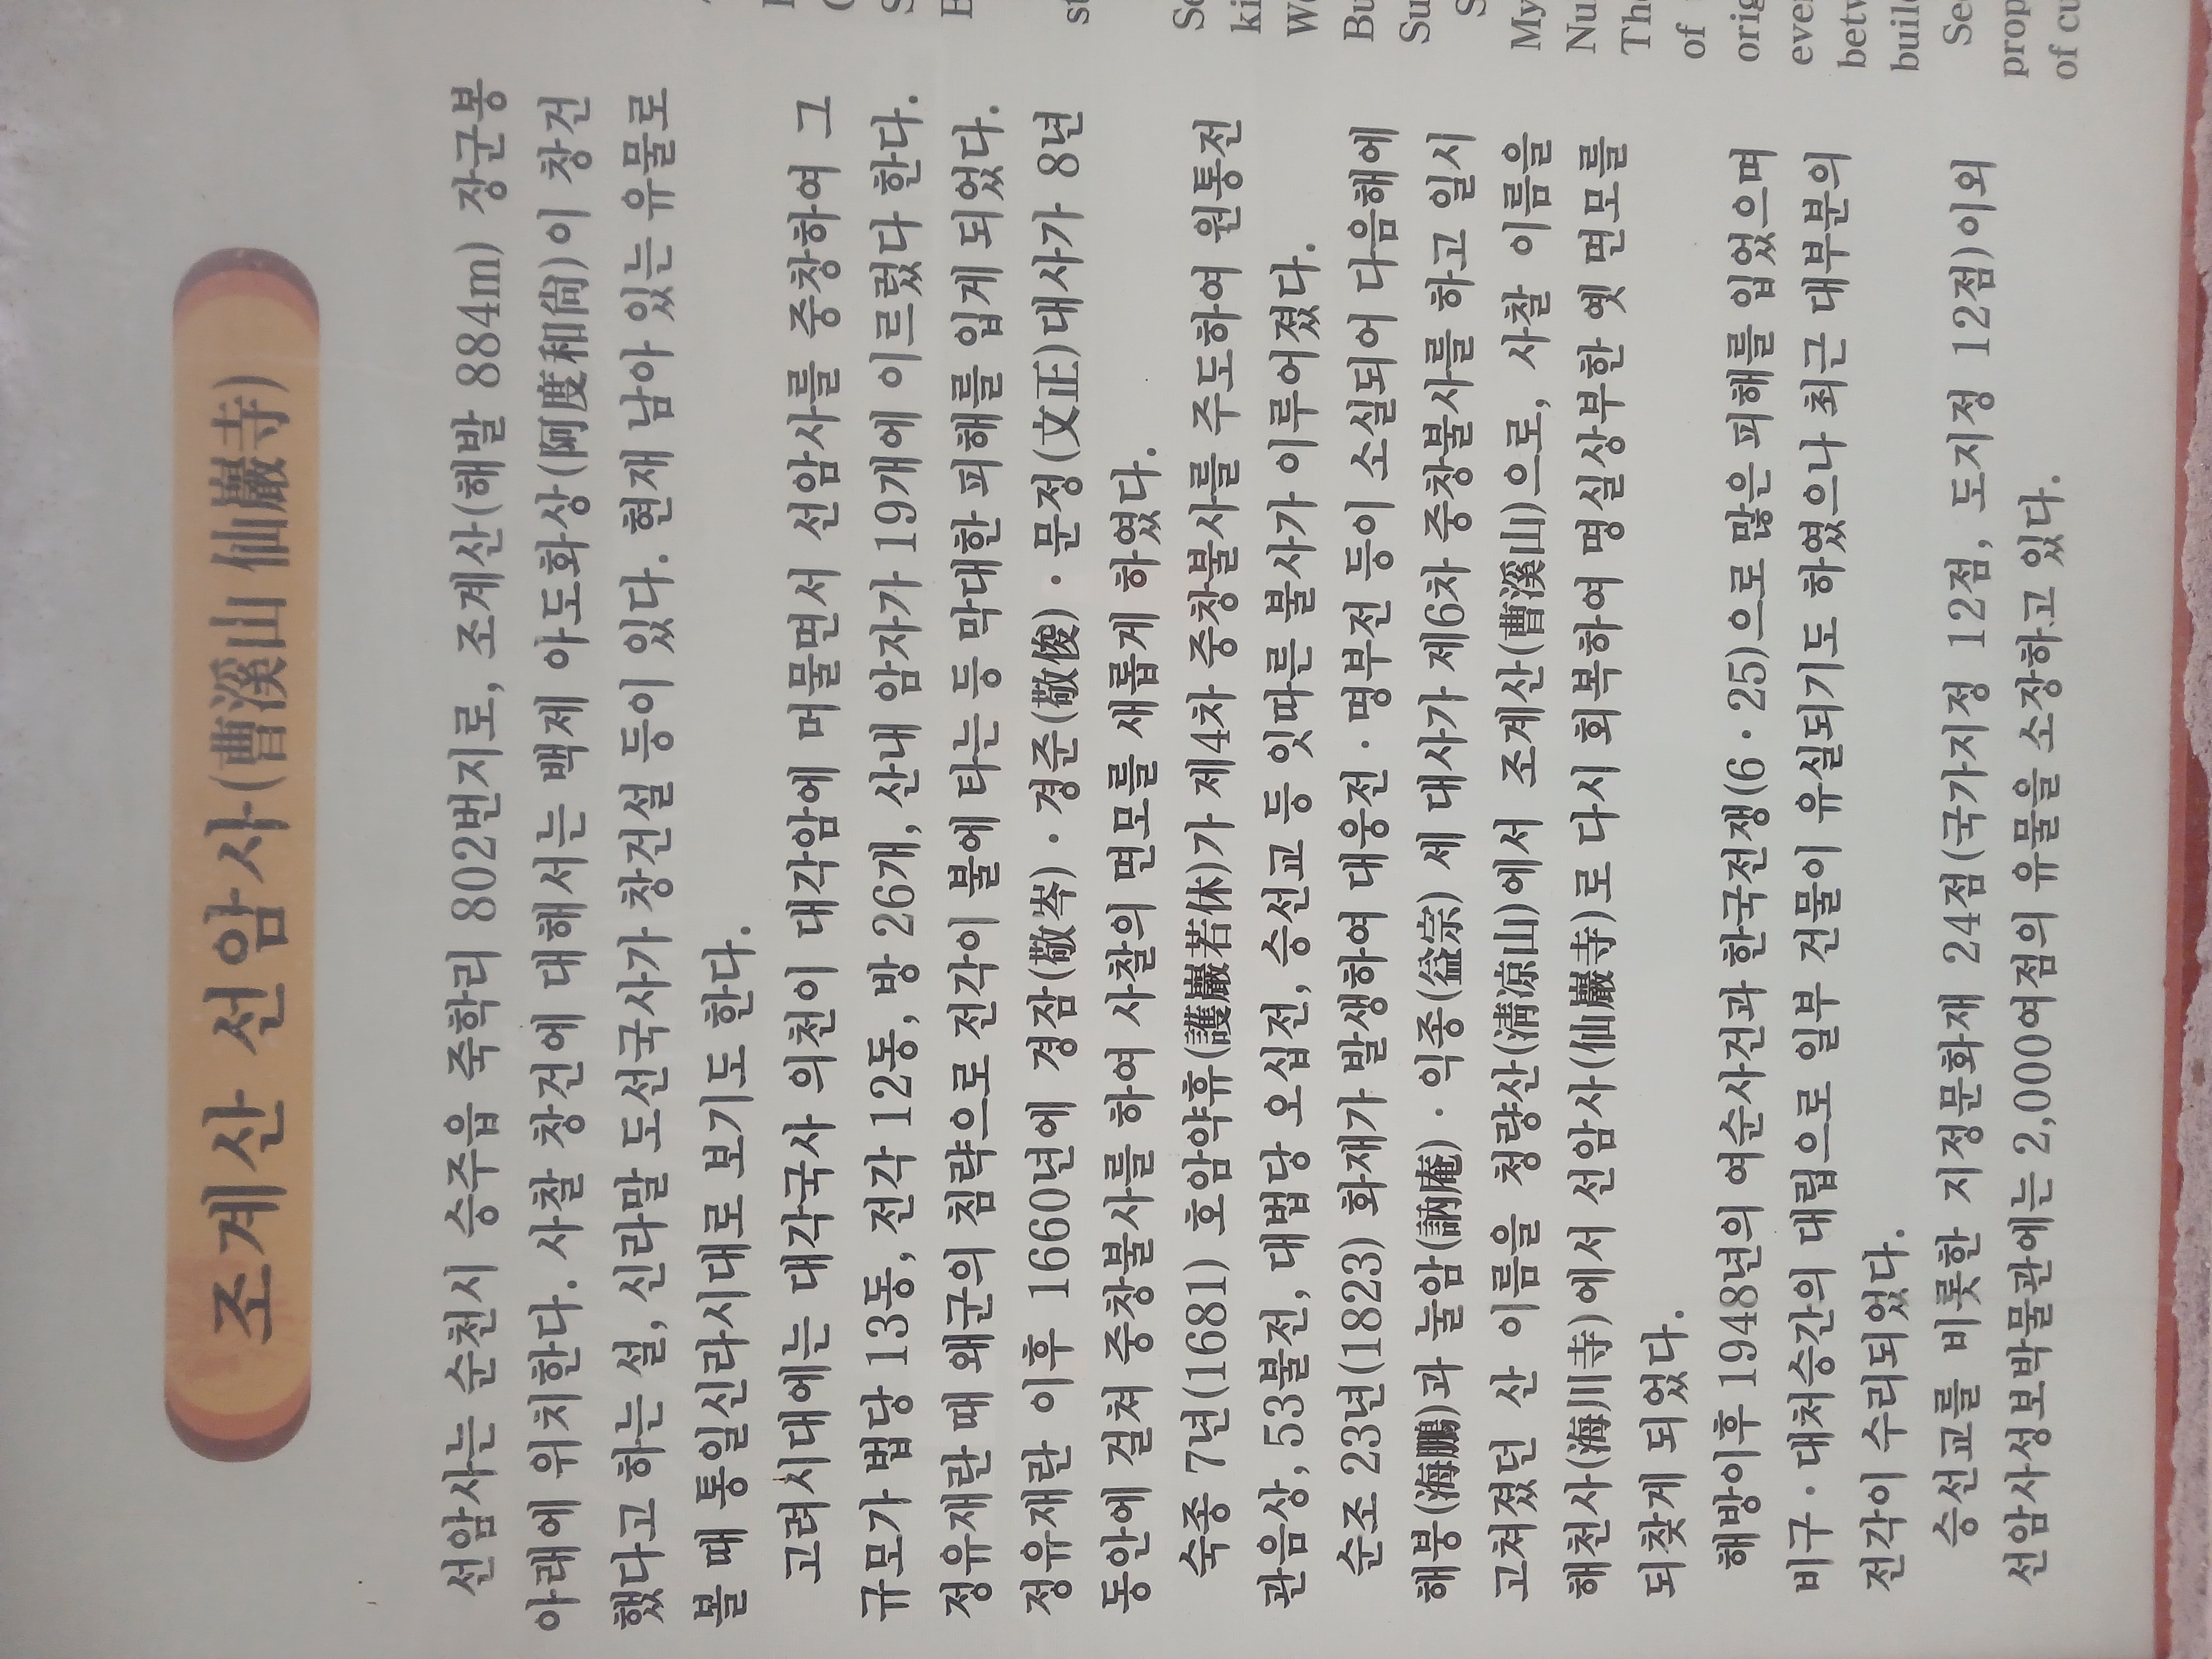 조계산 선암사(曹溪山 仙巖寺)
선암사는 순천시 승주읍 죽학리 802번지로, 조계산(해발 884m) 장군봉
아래에 위치한다. 사찰 창건에 대해서는 백제 아도화상(阿度和尙)이 창건
했다고 하는 설, 신라말 도선국사가 창건설 등이 있다. 현재 남아 있는 유물로
볼 때 통일신라시대로 보기도 한다.
고려시대에는 대각국사 의천이 대각암에 머물면서 선암사를 중창하여 그
규모가 법당 13동, 전각 12동, 방 26개, 산내 암자가 19개에 이르렀다 한다.
정유재란 때 왜군의 침략으로 전각이 불에 타는 등 막대한 피해를 입게 되었다.
정유재란 이후 1660년에 경잠(敬岑)·경준(敬俊)·문정(文正)대사가 8년
동안에 걸쳐 중창불사를 하여 사찰의 면모를 새롭게 하였다.
숙종 7년(1681) 호암약휴(護巖若休)가 제4차 중창불사를 주도하여 원통전
관음상, 53불전, 대법당 오십전, 승선교 등 잇따른 불사가 이루어졌다.
순조 23년(1823) 화재가 발생하여 대웅전·명부전 등이 소실되어 다음해에
해붕(海鵬)과 눌암(訥庵)·익종(益宗) 세 대사가 제6차 중창불사를 하고 일시
고쳐졌던 산 이름을 청량산(淸凉山)에서 조계산(曹溪山)으로, 사찰 이름을
해천사(海川寺)에서 선암사(仙巖寺)로 다시 회복하여 명실상부한 옛 면모를
되찾게 되었다.
해방이후 1948년의 여순사건과 한국전쟁(6·25)으로 많은 피해를 입었으며
비구·대처승간의 대립으로 일부 건물이 유실되기도 하였으나 최근 대부분의
전각이 수리되었다.
승선교를 비롯한 지정문화재 24점(국가지정 12점, 도지정 12점)이외
선암사성보박물관에는 2,000여점의 유물을 소장하고 있다.
of
of cu